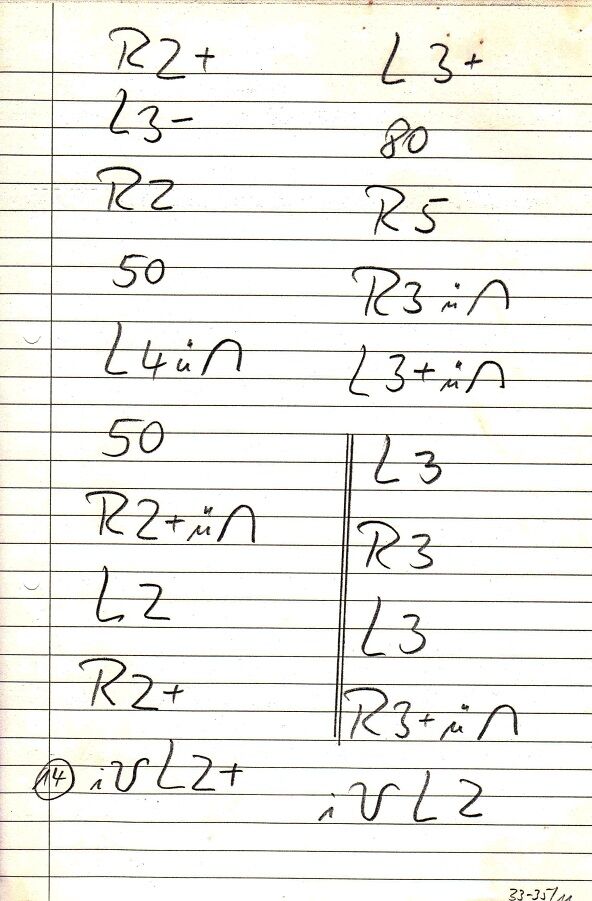 R2+
L3-
R2
50
L4ü∩
50
R2+ü∩
L2
R2+
14 i𝒱L2+
L3+
80
R5
R3ü∩
L3+ü∩
L3
R3
L3
R3+ü∩
i𝒱L2
33-35/11